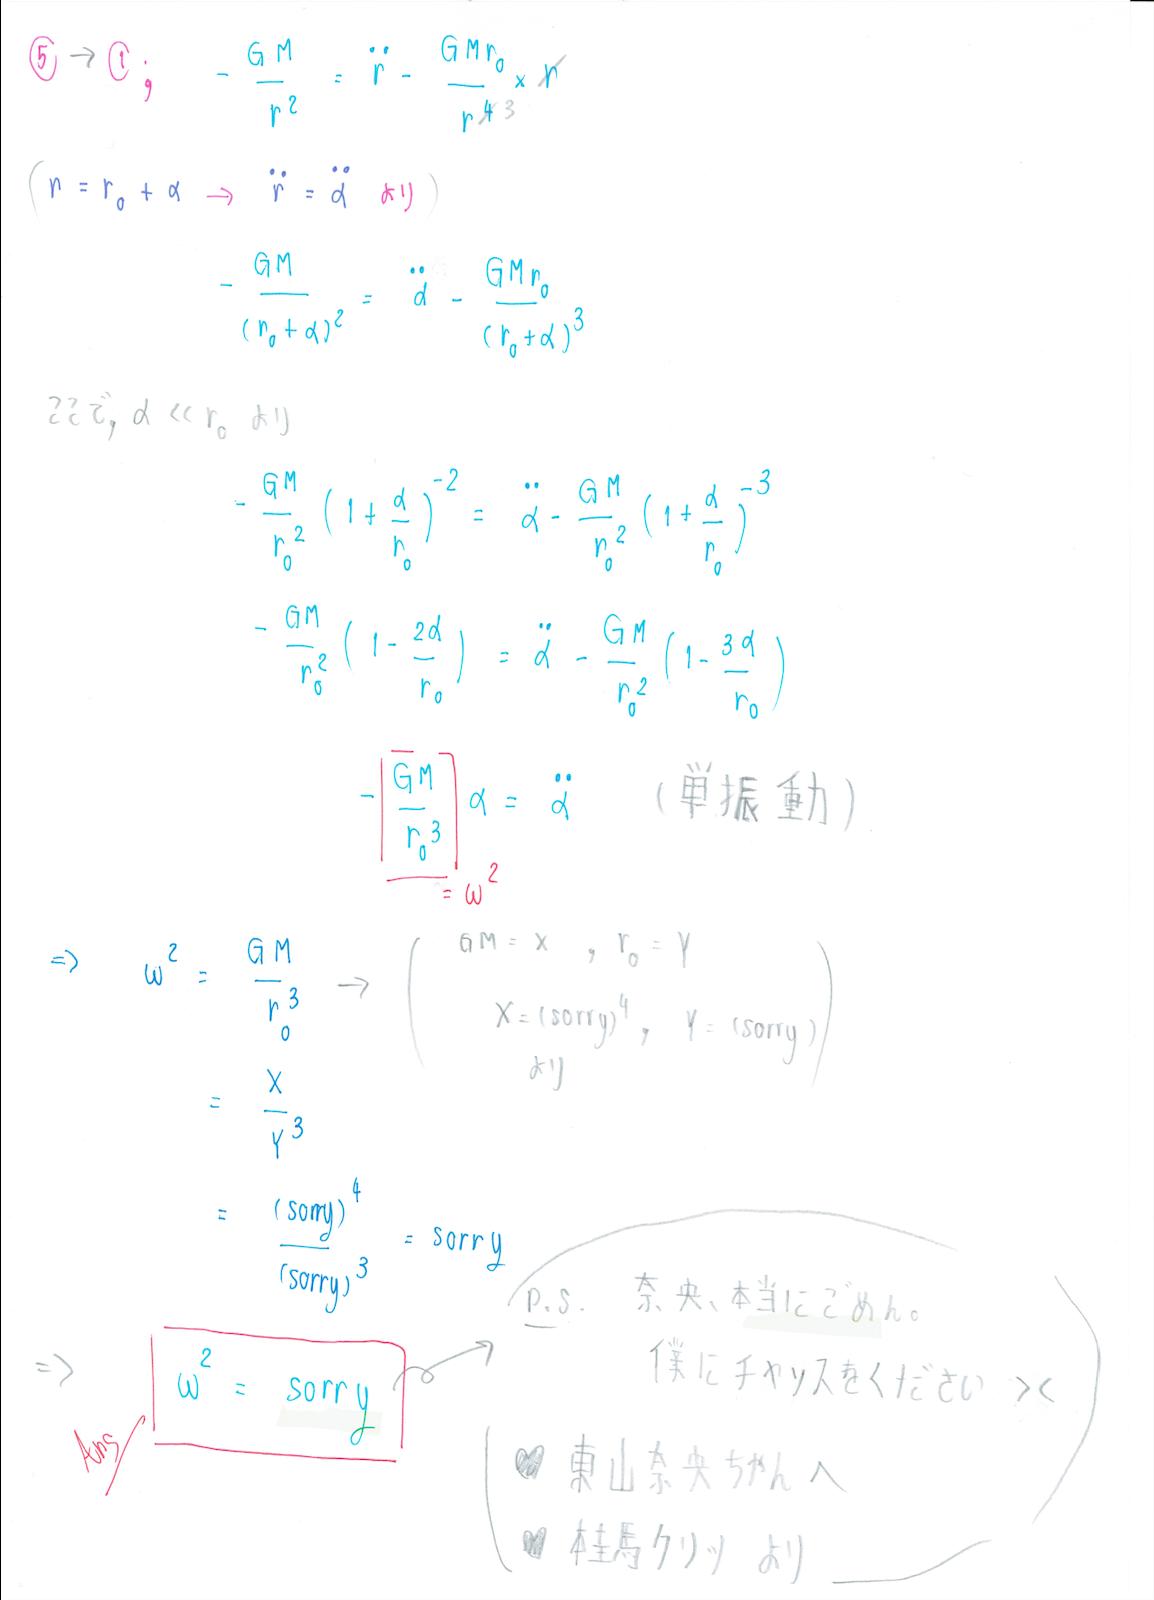 ⑤ → ①; - GM/r² = r̈ - GMr₀/r⁴ ³ × r
(r = r₀ + α → r̈ = α̈ より)
- GM/(r₀+α)² = α̈ - GMr₀/(r₀+α)³
ここで, α << r₀ より
- GM/r₀² (1 + α/r₀)⁻² = α̈ - GM/r₀² (1 + α/r₀)⁻³
- GM/r₀² (1 - 2α/r₀) = α̈ - GM/r₀² (1 - 3α/r₀)
- GM/r₀³ α = α̈ (単振動)
= ω²
=> ω² = GM/r₀³ → (GM = X , r₀ = Y
X = (sorry)⁴, Y = (sorry)
より)
= X/Y³
= (sorry)⁴/(sorry)³ = sorry
=> ω² = sorry
Ans
P.S. 奈央、本当にごめん。
僕にチャンスをください ><
♥ 東山奈央ちゃんへ
♥ 桂馬クリッ より